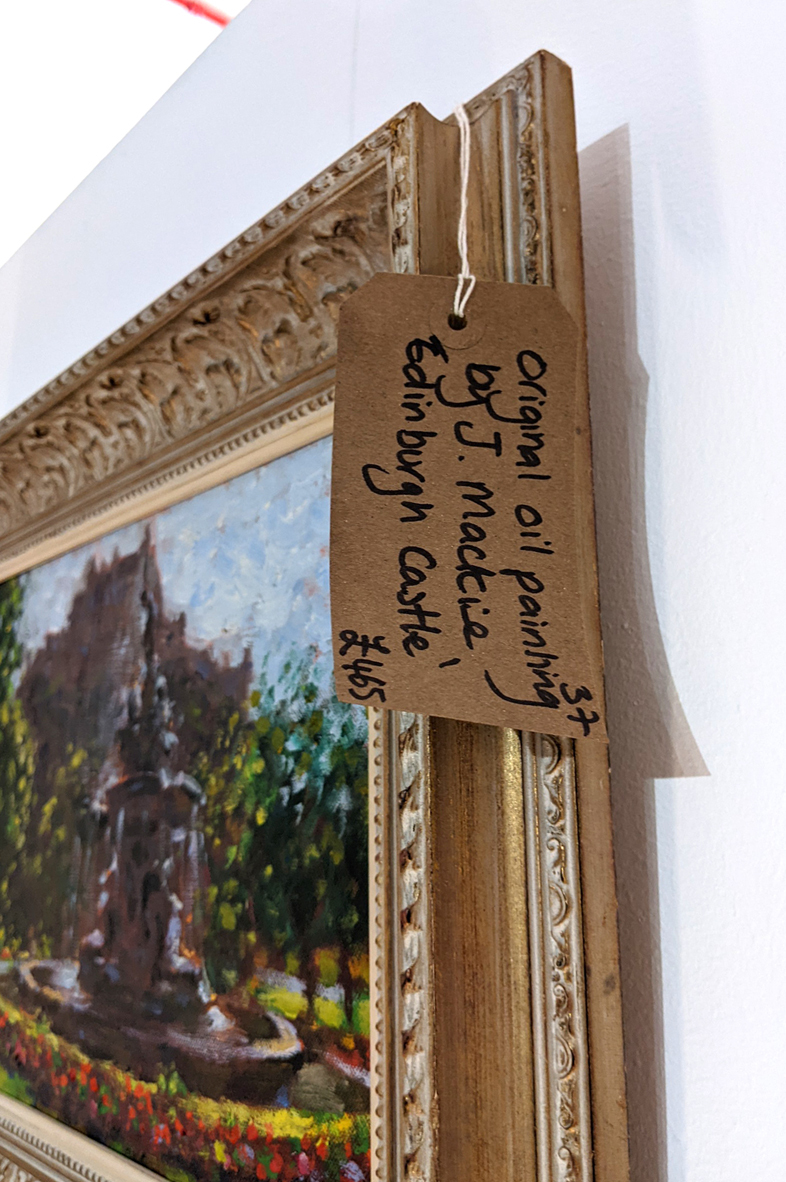 37
Original oil painting
by J. Mackie
Edinburgh Castle'
£465